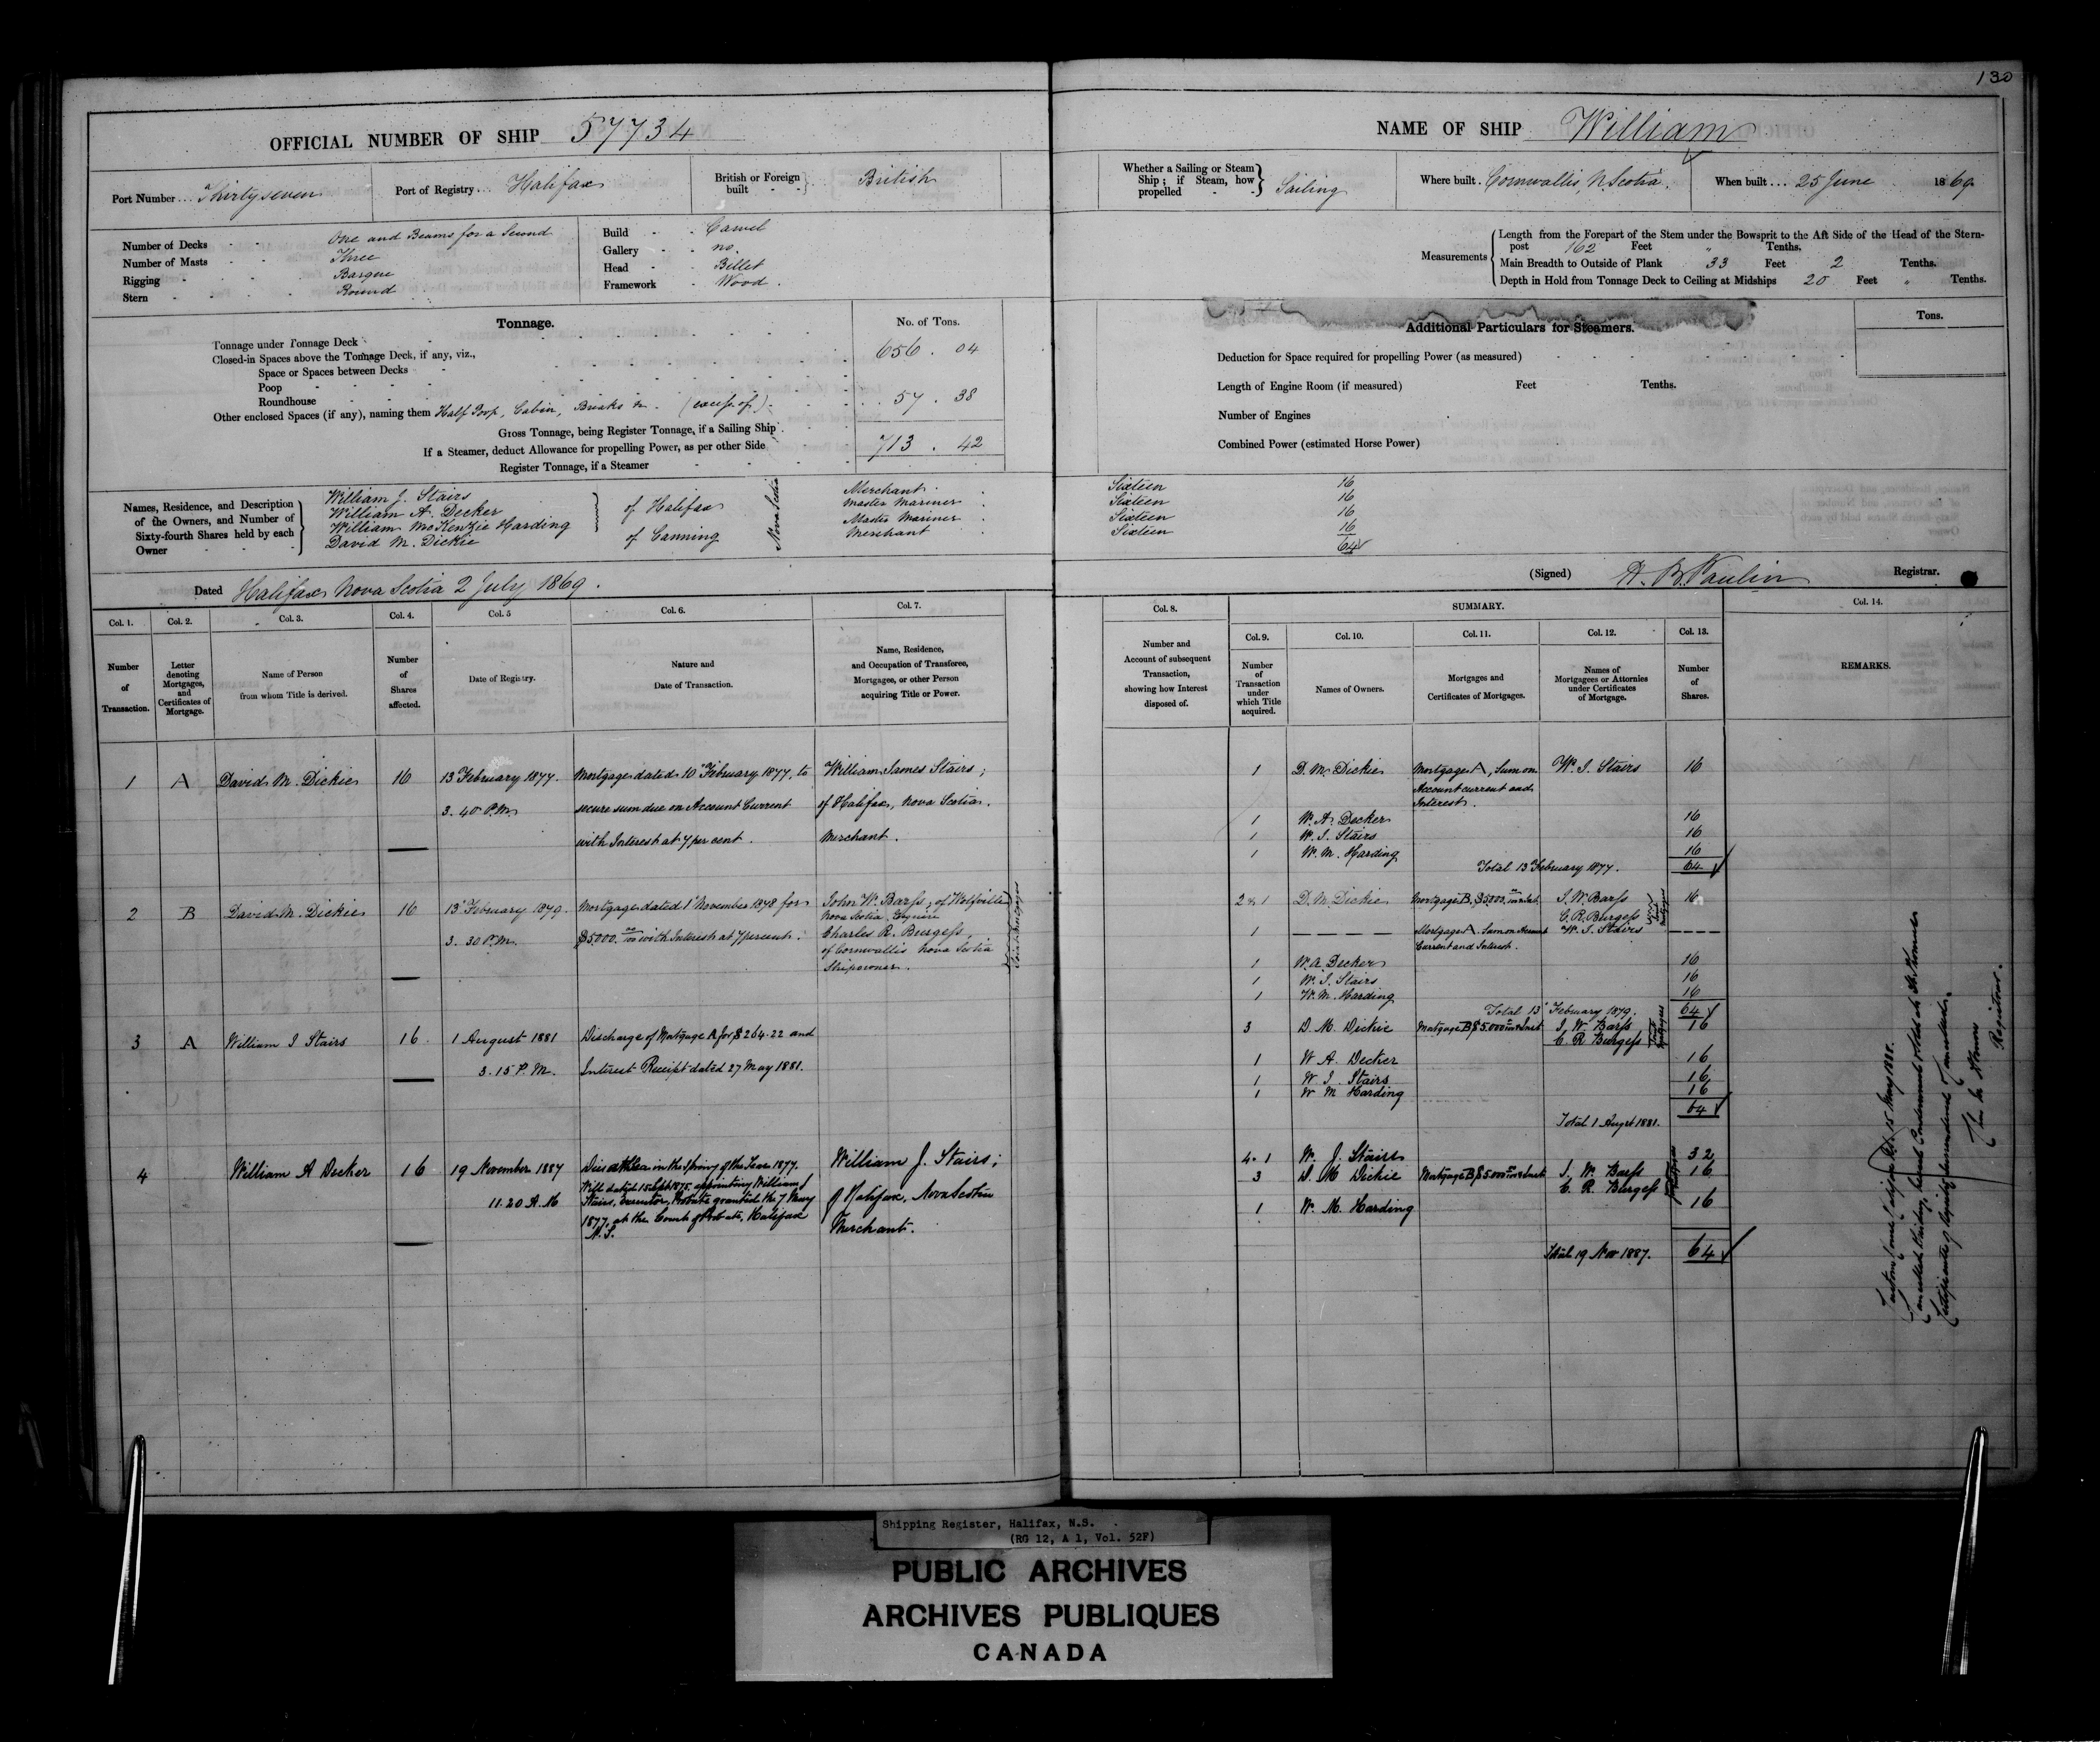 130
OFFICIAL NUMBER OF SHIP 57734
NAME OF SHIP William
Port Number ... Thirty seven
Port of Registry ... Halifax
British or Foreign built - - } British
Whether a Sailing or Steam Ship; if Steam, how propelled - - } Sailing
Where built . Cornwallis, N. Scotia.
When built ... 25 June 1869.
Number of Decks - - One and Beams for a Second
Number of Masts - - Three
Rigging - - Barque
Stern - - Round
Build - - Carvel
Gallery - - no.
Head - - Billet
Framework - Wood.
Measurements { Length from the Forepart of the Stem under the Bowsprit to the Aft Side of the Head of the Stern-
post 162 Feet " Tenths.
Main Breadth to Outside of Plank 33 Feet 2 Tenths.
Depth in Hold from Tonnage Deck to Ceiling at Midships 20 Feet " Tenths.
Tonnage.
No. of Tons.
Tonnage under Tonnage Deck 656 . 04
Closed-in Spaces above the Tonnage Deck, if any, viz.,
Space or Spaces between Decks
Poop
Roundhouse
Other enclosed Spaces (if any), naming them Half Poop, Cabin, Breaks &c. 57 . 38
Gross Tonnage, being Register Tonnage, if a Sailing Ship 713 . 42
If a Steamer, deduct Allowance for propelling Power, as per other Side
Register Tonnage, if a Steamer
Additional Particulars for Steamers.
Tons.
Deduction for Space required for propelling Power (as measured)
Length of Engine Room (if measured) Feet Tenths.
Number of Engines
Combined Power (estimated Horse Power)
Names, Residence, and Description of the Owners, and Number of Sixty-fourth Shares held by each Owner
William J. Stairs Merchant Sixteen 16
William A. Decker of Halifax Master Mariner Sixteen 16
William McKenzie Harding Master Mariner Sixteen 16
David M. Dickie of Canning Merchant Sixteen 16
Nova Scotia
64
Dated Halifax Nova Scotia 2 July 1869.
(Signed) H. B. Paulin Registrar.
Col. 1. Col. 2. Col. 3. Col. 4. Col. 5 Col. 6. Col. 7.
Col. 8. SUMMARY. Col. 14.
Col. 9. Col. 10. Col. 11. Col. 12. Col. 13.
Number of Transaction.
Letter denoting Mortgages, and Certificates of Mortgage.
Name of Person from whom Title is derived.
Number of Shares affected.
Date of Registry.
Nature and Date of Transaction.
Name, Residence, and Occupation of Transferee, Mortgagee, or other Person acquiring Title or Power.
Number and Account of subsequent Transaction, showing how Interest disposed of.
Number of Transaction under which Title acquired.
Names of Owners.
Mortgages and Certificates of Mortgages.
Names of Mortgagees or Attornies under Certificates of Mortgage.
Number of Shares.
REMARKS.
1 A David M. Dickie 16 13 February 1877. Mortgage dated 10 February 1877, to William James Stairs;
3. 40 P.M. secure sum due on Account Current of Halifax, Nova Scotia.
with Interest at 7 per cent. Merchant.
1 D. M. Dickie Mortgage A, Sum on W. J. Stairs 16
Account current and
Interest.
1 W. A. Decker 16
1 W. J. Stairs 16
1 W. M. Harding 16
Total 13 February 1877. 64
2 B David M. Dickie 16 13 February 1879. Mortgage dated 1 November 1878 for John W. Barss, of Wolfville
Nova Scotia, Esquire
3. 30 P.M. $5000.00 with Interest at 7 percent. Charles R. Burgess,
of Cornwallis Nova Scotia
Shipowner.
Joint Mortgagees
2 & 1 D. M. Dickie Mortgage B, $5000. and Int. J. W. Barss 16
C. R. Burgess
Joint Mortgagees
1 Mortgage A. Sum on Account W. J. Stairs
Current and Interest.
1 W. A Decker 16
1 W. J. Stairs 16
1 W. M. Harding 16
Total 13 February 1879. 64
3 A William J Stairs 16 1 August 1881 Discharge of Mortgage A for $264.22 and
3. 15 P. M. Interest Receipt dated 27 May 1881.
3 D. M. Dickie Mortgage B $5.000 and Int J. W. Barss 16
C. R Burgess
Joint Mortgagees
1 W A. Decker 16
1 W. J. Stairs 16
1 W M Harding 16
Total 1 Augst 1881. 64
4 William A Decker 16 19 November 1887 Died at Sea in the Spring of the Year 1877. William J. Stairs;
Will dated 15 Sept 1875, appointing William J
11.20 A. M Stairs, executor, Probate granted the 7 May of Halifax, Nova Scotia
1877, at the Court of Probate, Halifax
N. S. Merchant.
4. 1 W. J. Stairs 32
3 D. M Dickie Mortgage B $5000 and Int J. W. Barss 16
C. R. Burgess
1 W. M. Harding 16
Total 19 Nov 1887. 64
15 May 1888.
Condemned & sold at St. Thomas
Certificate of registry surrendered & cancelled.
Registrar.
Shipping Register, Halifax, N.S.
(RG 12, A 1, Vol. 52F)
PUBLIC ARCHIVES
ARCHIVES PUBLIQUES
CANADA